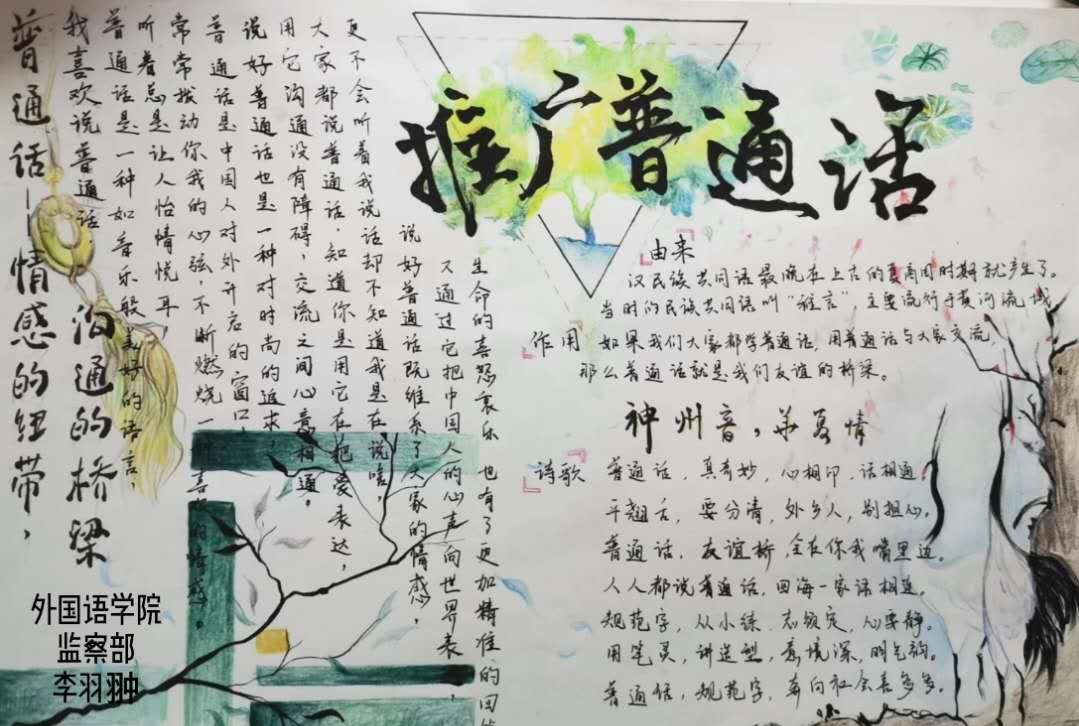 推广普通话
普通话——情感的纽带，
沟通的桥梁
我喜欢说普通话
普通话是一种如音乐般美好的语言，
听着总是让人怡情悦耳
常常拨动你我的心弦，不断燃烧一
普通话是中国人对外开启的窗口，
说好普通话也是一种对时尚的追求，
用它沟通没有障碍，交流之间心意相通。
大家都说普通话，知道你是用它在把爱表达，
更不会听着我说话却不知道我是在说啥，
说好普通话既维系了大家的情感，
又通过它把中国人的心声向世界表
生命的喜怒哀乐也有了更加精准的回
『由来』
汉民族共同语最晚在上古的夏商周时期就产生了。
当时的民族共同语叫“雅言”，主要流行于黄河流域
『作用』
如果我们大家都学普通话，用普通话与大家交流，
那么普通话就是我们友谊的桥梁。
神州音，华夏情
『诗歌』
普通话，真奇妙，心相印，话相通。
平翘舌，要分清，外乡人，别担心。
普通话，友谊桥，全在你我嘴里边。
人人都说普通话，四海一家语相连。
规范字，从小练，志锁定，心要静。
用笔灵，讲造型，意境深，明气韵。
普通话，规范字，奔向社会喜多多。
外国语学院
监察部
李羽翀